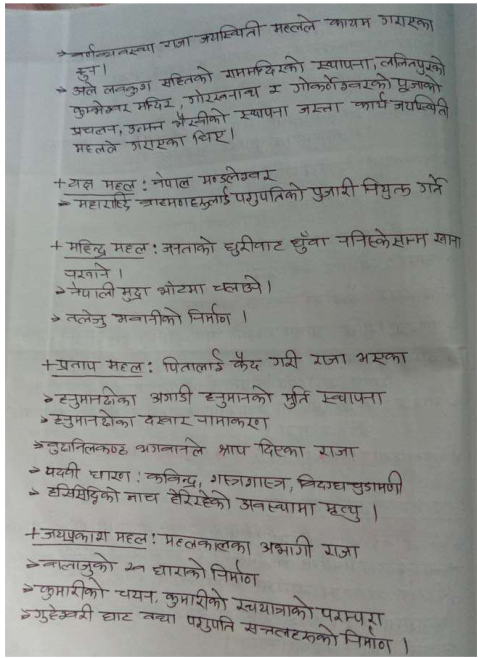 ➢ वर्णव्यवस्था राजा जयस्थिती मल्लले कायम गराएका
हुन्।
➢ अले लवकुश सहितको राममन्दिरको स्थापना, ललितपुरको
कुम्भेश्वर मन्दिर, गोरखनाथ र गोकर्णेश्वरको पूजाको
प्रचलन, उन्मत्त भैरवीको स्थापना जस्ता कार्य जयस्थिती
मल्लले गराएका थिए।
+ यक्ष मल्ल : नेपाल मण्डलेश्वर
➢ महाराष्ट्रि ब्राह्मणहरूलाई पशुपतिको पुजारी नियुक्त गर्ने
+ महिन्द्र मल्ल : जनताको धुरीबाट धुँवा ननिस्केसम्म खाना
नखाने ।
➢ नेपाली मुद्रा भोटमा चलाउने ।
➢ तलेजु भवानीको निर्माण ।
+ प्रताप मल्ल : पितालाई कैद गरी राजा भएका
➢ हनुमानढोका अगाडी हनुमानको मुर्ति स्थापना
➢ हनुमानढोका दरबार नामाकरण
➢ बुढानिलकण्ठ भगवानले श्राप दिएका राजा
➢ पदवी धारण : कविन्द्र, शस्त्रशास्त्र, विदग्धचुडामणी
➢ हरिसिद्धिको नाच हेरिरहेको अवस्थामा मृत्यु ।
+ जयप्रकाश मल्ल : मल्लकालका अभागी राजा
➢ बालाजुको २२ धाराको निर्माण
➢ कुमारीको चयन, कुमारीको रथयात्राको परम्परा
➢ गुहेश्वरी घाट तथा पशुपति सत्तलहरुको निर्माण ।